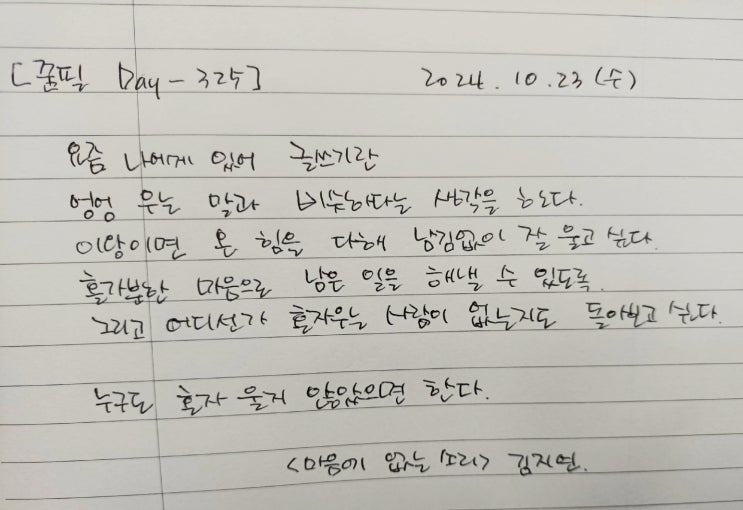 [줌필 Day - 325] 2024. 10. 23 (수)
요즘 나에게 있어 글쓰기란
엉엉 우는 말과 비슷하다는 생각을 한다.
이왕이면 온 힘을 다해 남김없이 잘 울고 싶다.
홀가분한 마음으로 남은 일을 해낼 수 있도록.
그리고 어디선가 혼자우는 사람이 없는지도 돌아보고 싶다.
누구도 혼자 울지 않았으면 한다.
<마음에 없는 소리> 김지연.